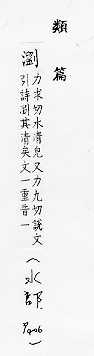 類篇
瀏力求切水清皃又力九切說文
引詩瀏其清矣文一重音一
(水部
P406)